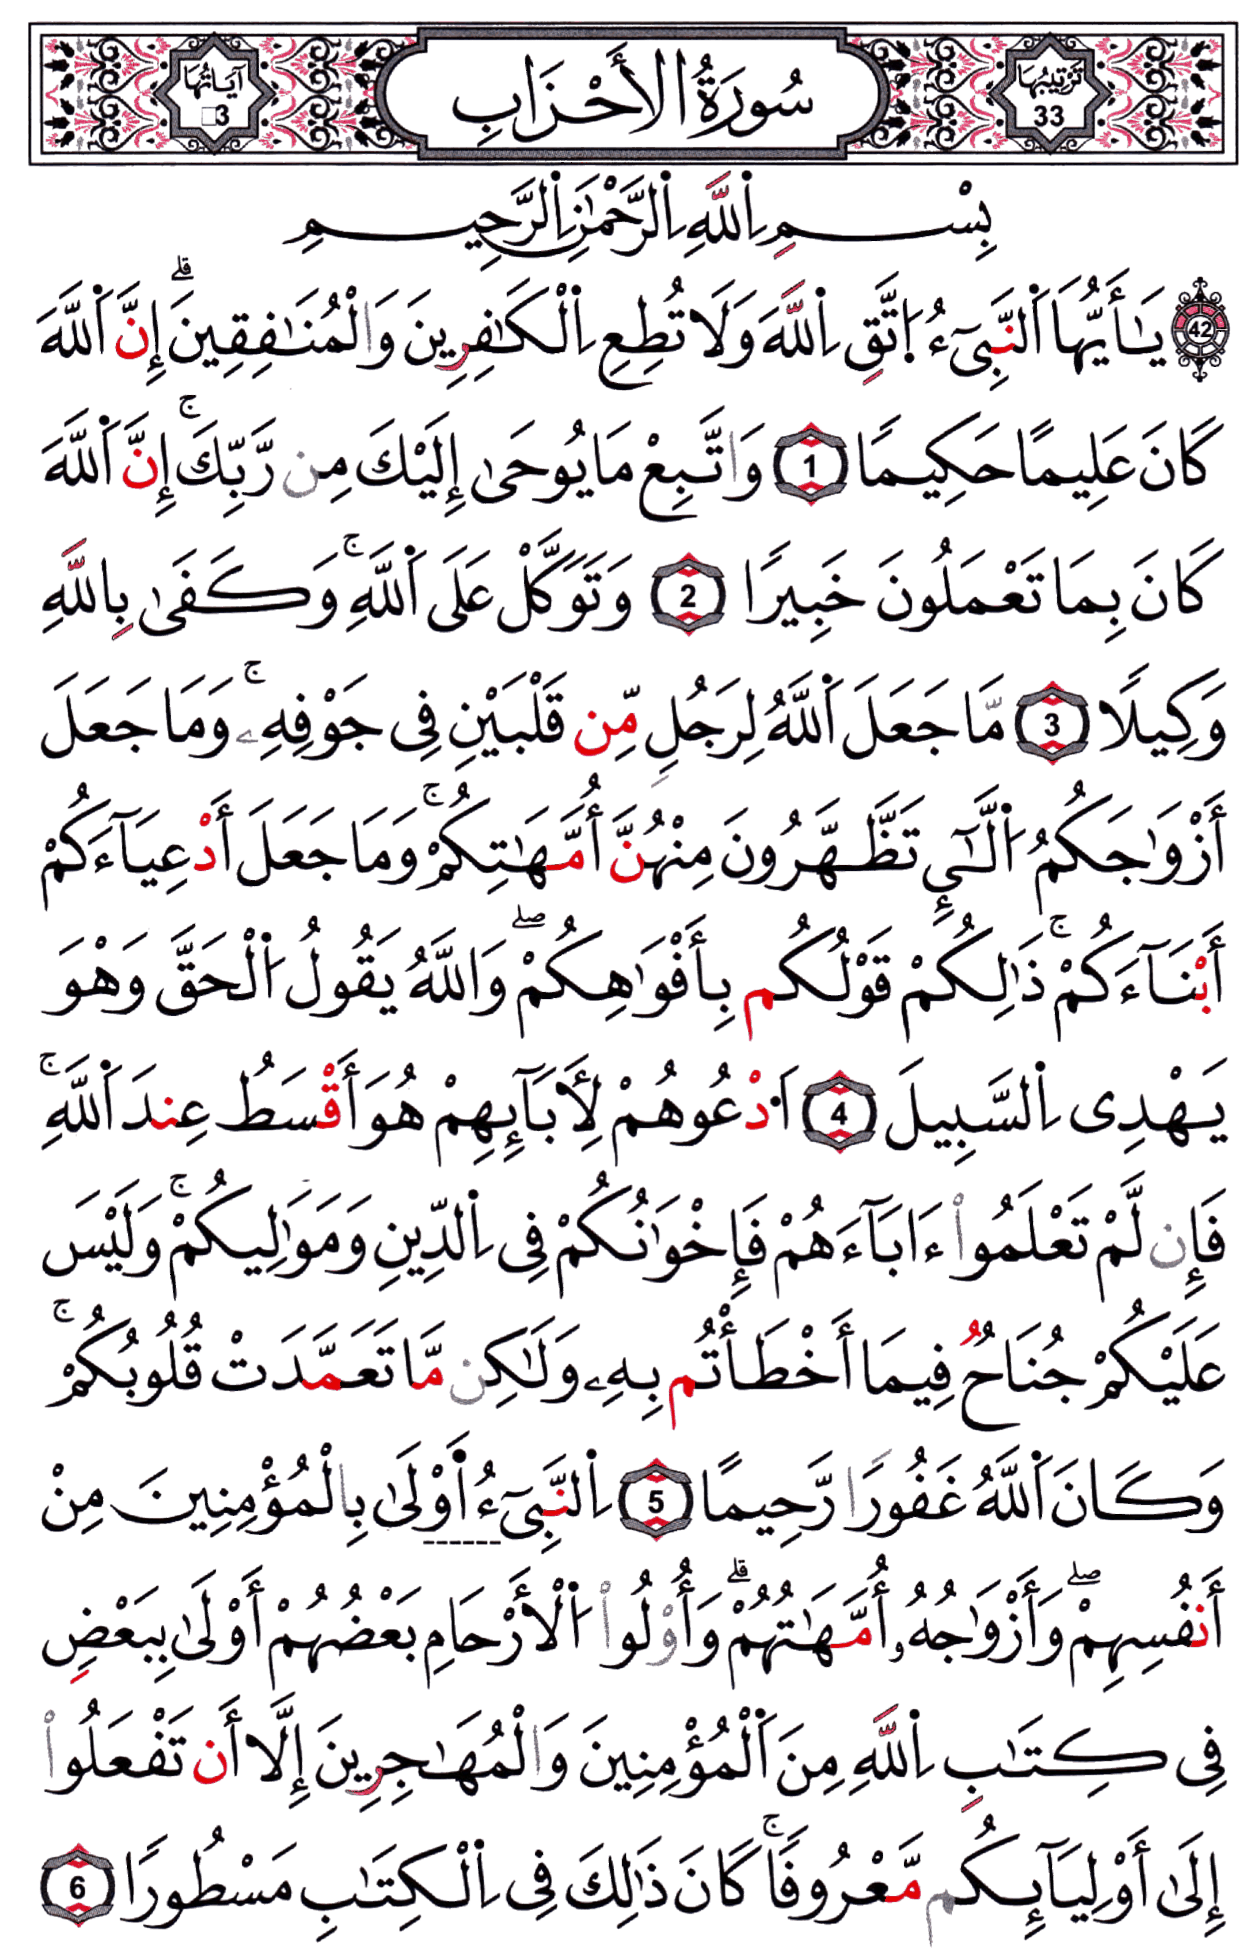 تَرْتِيبُهَا 33 سُورَةُ الأَحْزَابِ آيَاتُهَا 3
بِسْمِ اِللَّهِ اِلرَّحْمَٰنِ اِلرَّحِيمِ
42 يَٰأَيُّهَا اَلنَّبِىٓءُ اِتَّقِ اِللَّهَ وَلَا تُطِعِ اِلْكَٰفِرِينَ وَالْمُنَٰفِقِينَ ۗ إِنَّ اَللَّهَ
كَانَ عَلِيمًا حَكِيمًا 1 وَاتَّبِعْ مَا يُوحَىٰ إِلَيْكَ مِن رَّبِّكَ ۚ إِنَّ اَللَّهَ
كَانَ بِمَا تَعْمَلُونَ خَبِيرًا 2 وَتَوَكَّلْ عَلَى اَللَّهِ ۚ وَكَفَىٰ بِاللَّهِ
وَكِيلًا 3 مَّا جَعَلَ اَللَّهُ لِرَجُلٍ مِّن قَلْبَيْنِ فِى جَوْفِهِۦ ۚ وَمَا جَعَلَ
أَزْوَٰجَكُمُ اُلَّٰٓـِٔے تَظَّهَّرُونَ مِنْهُنَّ أُمَّهَٰتِكُمْ ۚ وَمَا جَعَلَ أَدْعِيَآءَكُمْ
أَبْنَآءَكُمْ ۚ ذَٰلِكُمْ قَوْلُكُم بِأَفْوَٰهِكُمْ ۖ وَاللَّهُ يَقُولُ اُلْحَقَّ وَهْوَ
يَهْدِى اِلسَّبِيلَ 4 اَدْعُوهُمْ لِأَبَآئِهِمْ هُوَ أَقْسَطُ عِندَ اَللَّهِ ۚ
فَإِن لَّمْ تَعْلَمُواْ ءَابَآءَهُمْ فَإِخْوَٰنُكُمْ فِى اِلدِّينِ وَمَوَٰلِيكُمْ ۚ وَلَيْسَ
عَلَيْكُمْ جُنَاحٌ فِيمَا أَخْطَأْتُم بِهِۦ وَلَٰكِن مَّا تَعَمَّدَتْ قُلُوبُكُمْ ۚ
وَكَانَ اَللَّهُ غَفُورًا رَّحِيمًا 5 اِلنَّبِىٓءُ أَوْلَىٰ بِالْمُؤْمِنِينَ مِنْ
أَنفُسِهِمْ ۖ وَأَزْوَٰجُهُۥ أُمَّهَٰتُهُمْ ۗ وَأُوْلُواْ اُلْأَرْحَامِ بَعْضُهُمْ أَوْلَىٰ بِبَعْضٍ
فِى كِتَٰبِ اِللَّهِ مِنَ اَلْمُؤْمِنِينَ وَالْمُهَٰجِرِينَ إِلَّا أَن تَفْعَلُواْ
إِلَىٰ أَوْلِيَآئِكُم مَّعْرُوفًا ۚ كَانَ ذَٰلِكَ فِى اِلْكِتَٰبِ مَسْطُورًا 6